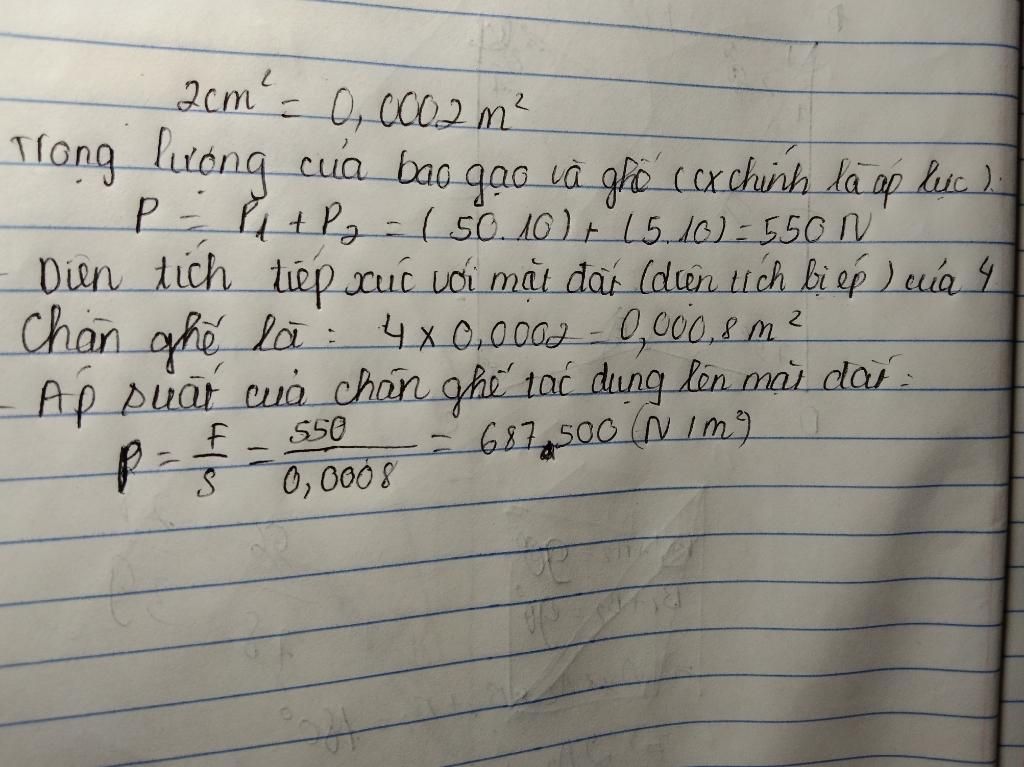 2cm² = 0,0002 m²
Trọng lượng của bao gạo và ghế (cx chính là áp lực).
P = P1 + P2 = (50.10) + (5.10) = 550 N
- Diện tích tiếp xúc với mặt đất (diện tích bị ép) của 4
Chân ghế là : 4 x 0,0002 = 0,000,8 m²
- Áp suất của chân ghế tác dụng lên mặt đất :
P = F/S = 550/0,0008 = 687.500 (N/m²)